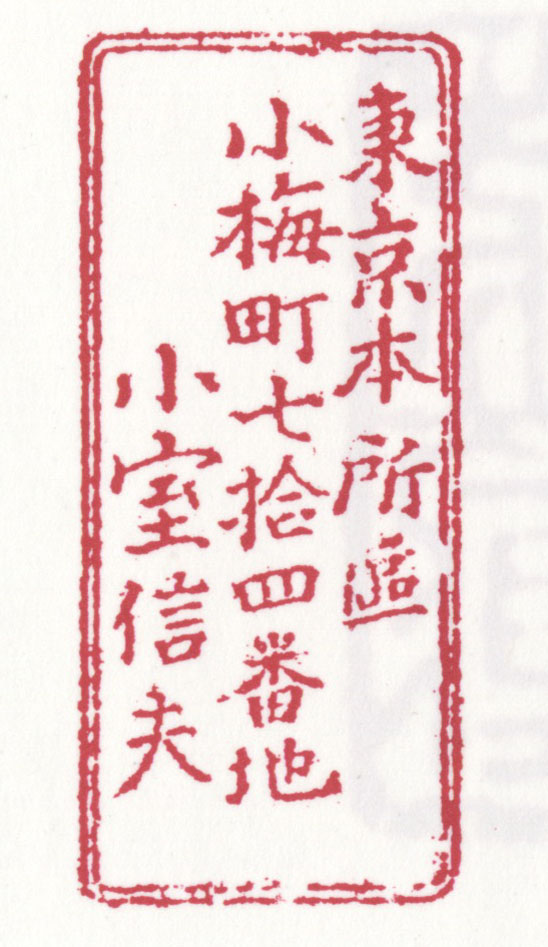 東京本所區
小梅町七拾四番地
小室信夫